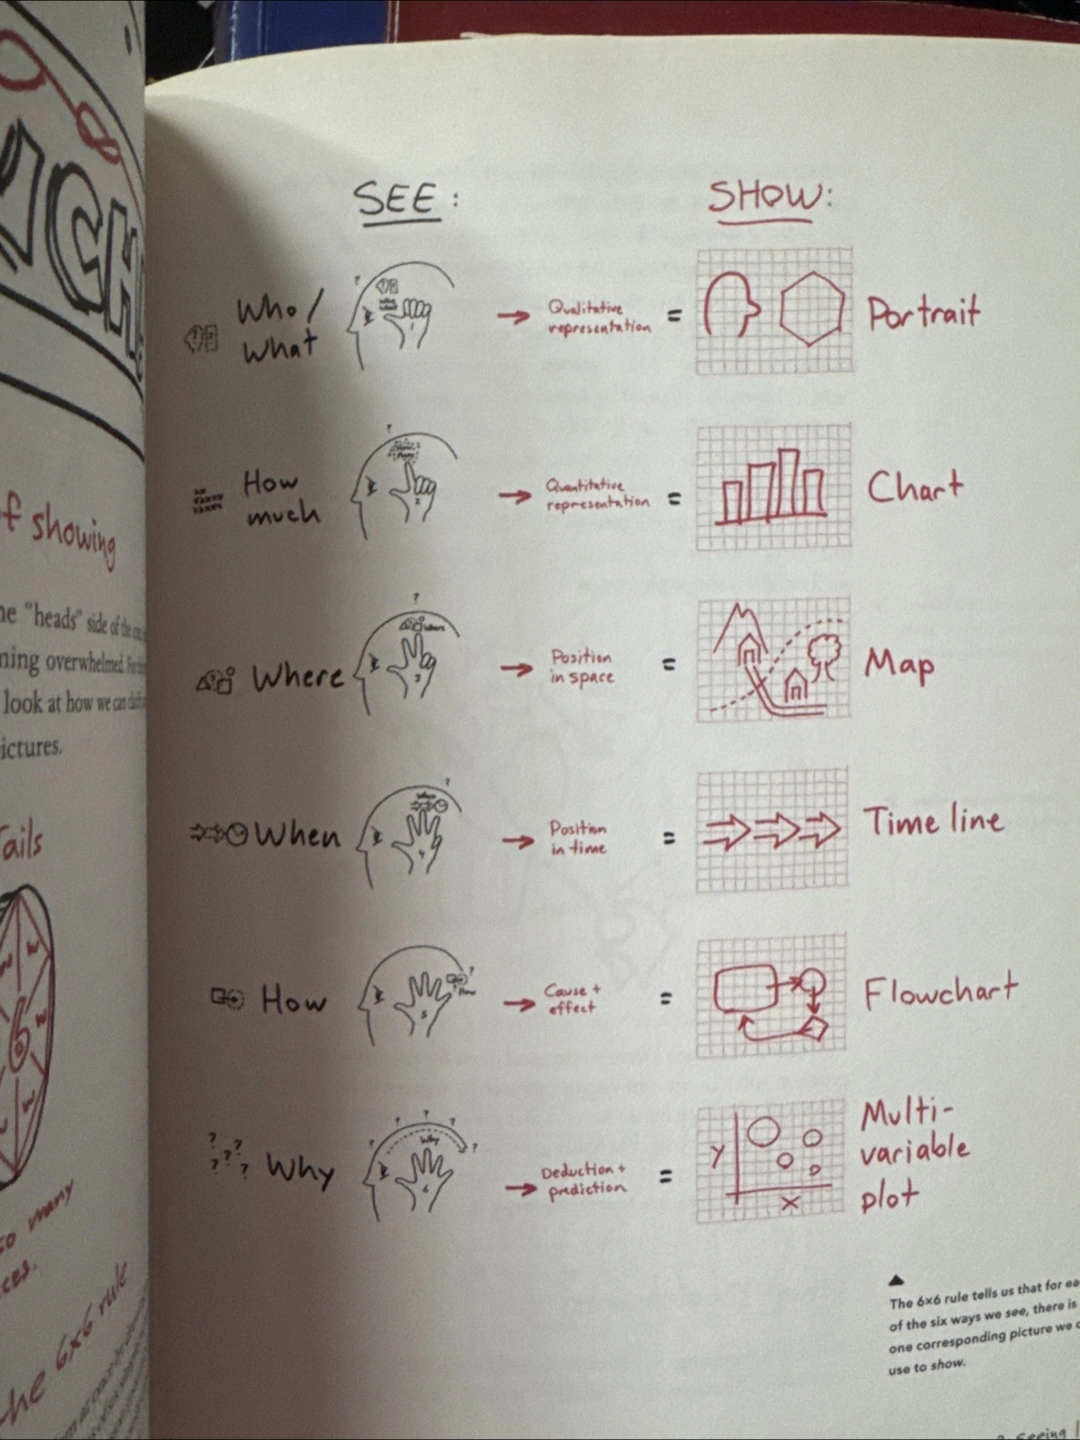 NCH
of showing
"heads" side of the
ning overwhelmed.
look at how we can
ictures.
Tails
6
so many
the 6x6 rule
SEE:
SHOW:
Who/
What
Qualitative
representation
=
Portrait
How
much
Quantitative
representation
=
Chart
Where
Where
Position
in space
=
Map
When
Position
in time
=
Time line
How
How
Cause +
effect
=
Flowchart
Why
Why
Deduction +
prediction
=
Y
X
Multi-
variable
plot
The 6×6 rule tells us that for ea
of the six ways we see, there is
one corresponding picture we c
use to show.
Seeing |